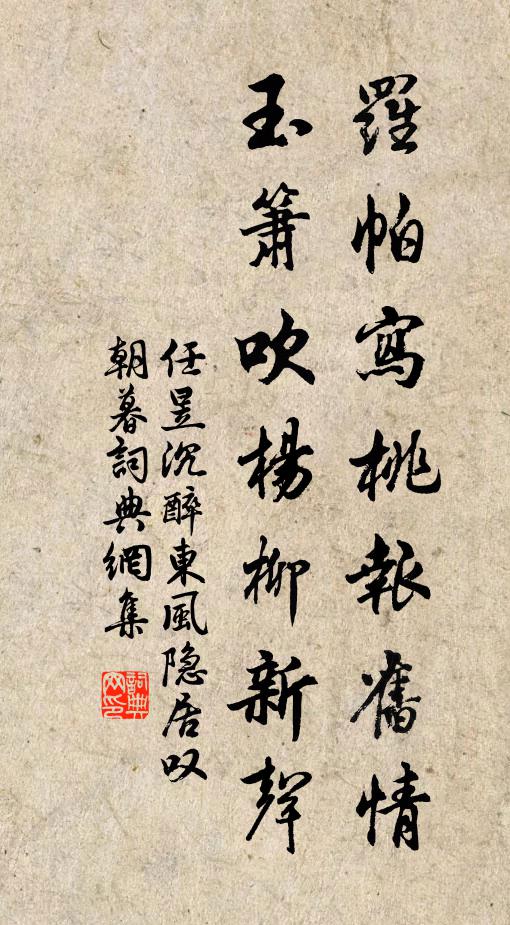 羅帕寫桃報舊情
玉簫吹楊柳新聲
任昱沉醉東風隐居叹
朝暮詞典網集
詞典網印